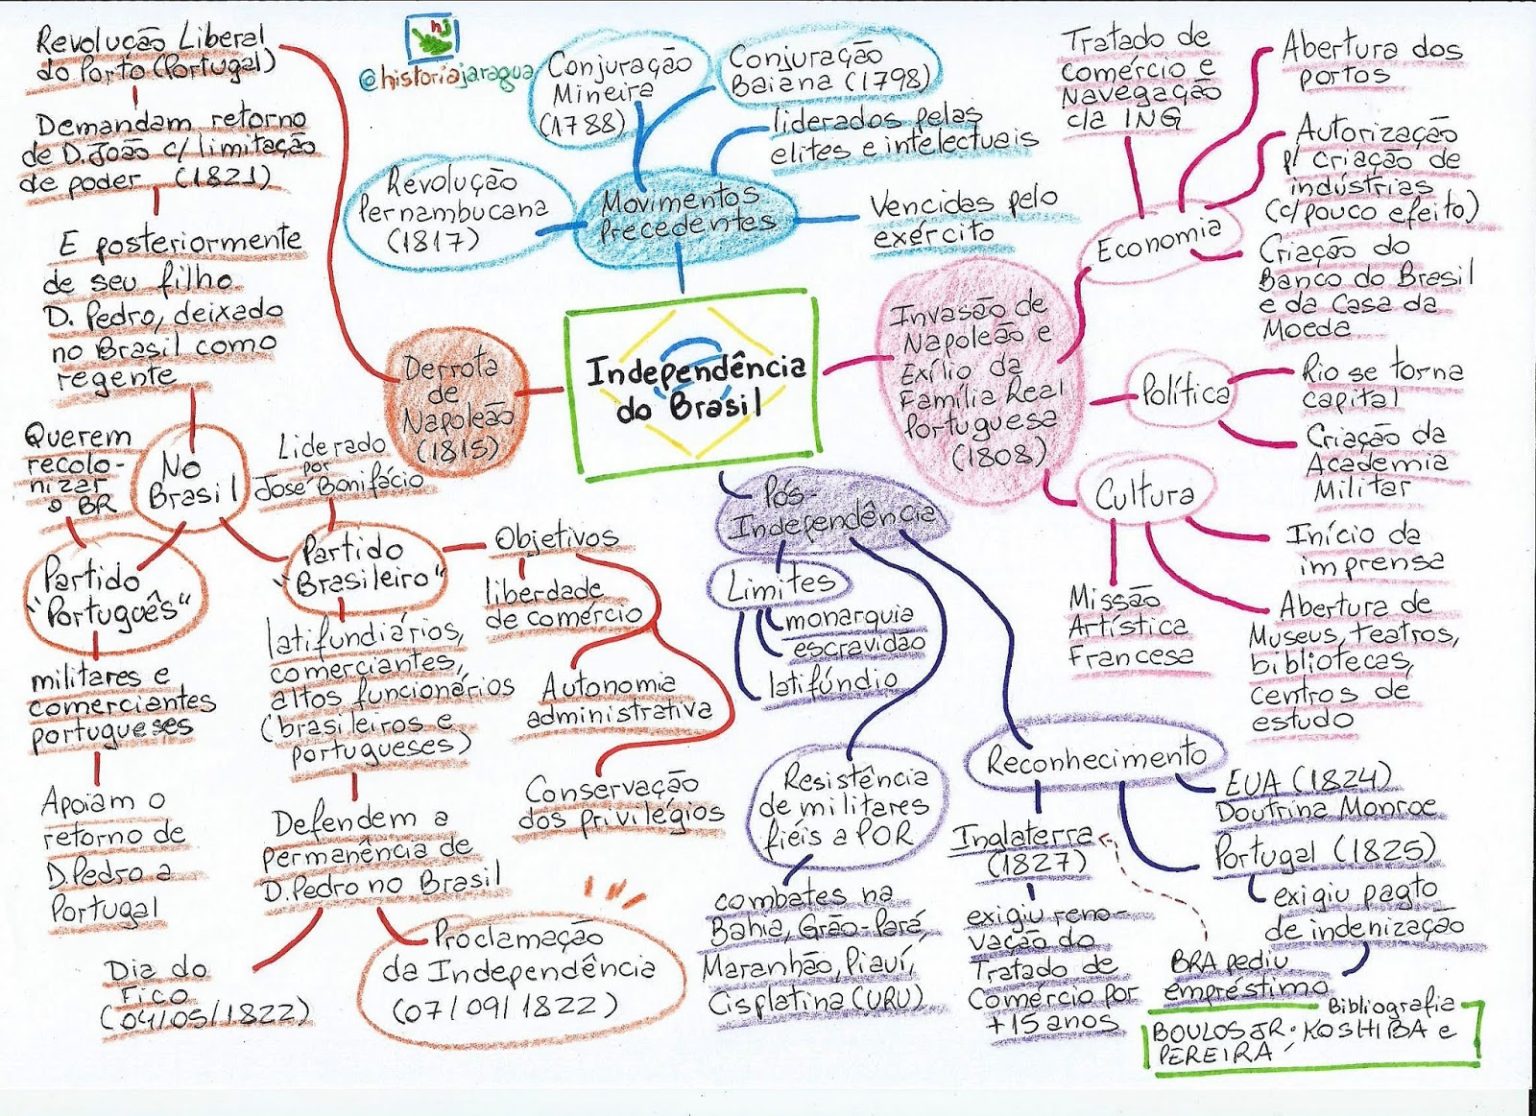 Revolução Liberal
do Porto (Portugal)
Demandam retorno
de D. João c/ limitação
de poder (1821)
E posteriormente
de seu filho
D. Pedro, deixado
no Brasil como
regente
hj
@historiajaragua
Conjuração
Mineira
(1788)
Conjuração
Baiana (1798)
liderados pelas
elites e intelectuais
Revolução
Pernambucana
(1817)
Movimentos
Precedentes
Vencidas pelo
exército
Tratado de
comércio e
Navegação
c/a ING
Abertura dos
portos
Autorização
p/ criação de
indústrias
(c/pouco efeito)
Economia
Criação do
Banco do Brasil
e da Casa da
Moeda
Invasão de
Napoleão e
Exílio da
Família Real
Portuguesa
(1808)
Política
Rio se torna
capital
Criação da
Academia
Militar
Cultura
Início da
imprensa
Missão
Artística
Francesa
Abertura de
Museus, teatros,
bibliotecas,
centros de
estudo
Independência
do Brasil
Derrota
de
Napoleão
(1815)
Querem
recolo-
nizar
o BR
No
Brasil
Liderado
por
José Bonifácio
Partido
"Português"
militares e
comerciantes
portugueses
Apoiam o
retorno de
D. Pedro a
Portugal
Partido
"Brasileiro"
latifundiários,
comerciantes,
altos funcionários
(brasileiros e
portugueses)
Defendem a
permanência de
D. Pedro no Brasil
Dia do
Fico
(04/05/1822)
Proclamação
da Independência
(07/09/1822)
Objetivos
liberdade
de comércio
Autonomia
administrativa
Conservação
dos privilégios
Pós-
Independência
Limites
monarquia
escravidão
latifúndio
Resistência
de militares
fiéis a POR
combates na
Bahia, Grão-Pará,
Maranhão, Piauí,
Cisplatina (URU)
Reconhecimento
EUA (1824)
Doutrina Monroe
Inglaterra
(1827)
exigiu reno-
vação do
Tratado de
Comércio por
+15 anos
Portugal (1825)
exigiu pagto
de indenização
BRA pediu
empréstimo
Bibliografia
BOULOS JR; KOSHIBA e
PEREIRA